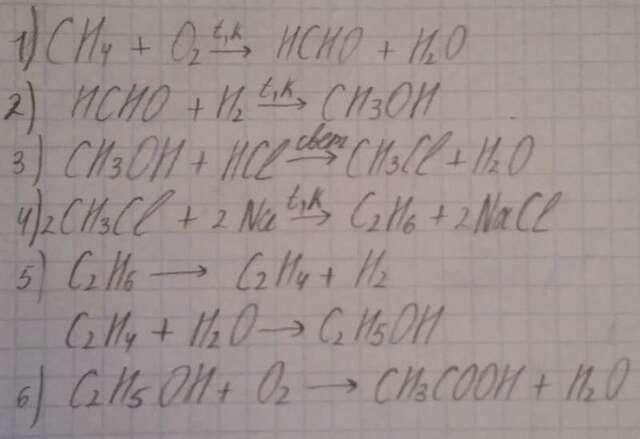 1) CH4 + O2 t,k→ HCHO + H2O
2) HCHO + H2 t,k→ CH3OH
3) CH3OH + HCl свет→ CH3Cl + H2O
4) 2CH3Cl + 2Na t,k→ C2H6 + 2NaCl
5) C2H6 → C2H4 + H2
C2H4 + H2O → C2H5OH
6) C2H5OH + O2 → CH3COOH + H2O